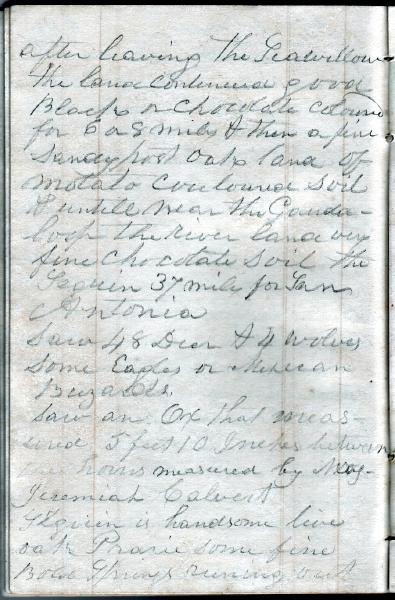 after leaving the Geawillow
the land continued good
Black or chocolate coloured
for 6 or 8 miles & then a fine
Sandy post oak land of
molato couloured soil
& untill near the Gauda-
loop the river land very
fine chocolate soil the
Seguin 37 mile for San
Antonia
Saw 48 Deer & 4 wolves
some Eagles or Mexican
Buzards.
Saw an Ox that meas-
ured 5 feet 10 Inches between
horns measured by Maj-
Jeremiah Calvert
Seguin is handsome live
oak Prarie some fine
Bold Springs runing out